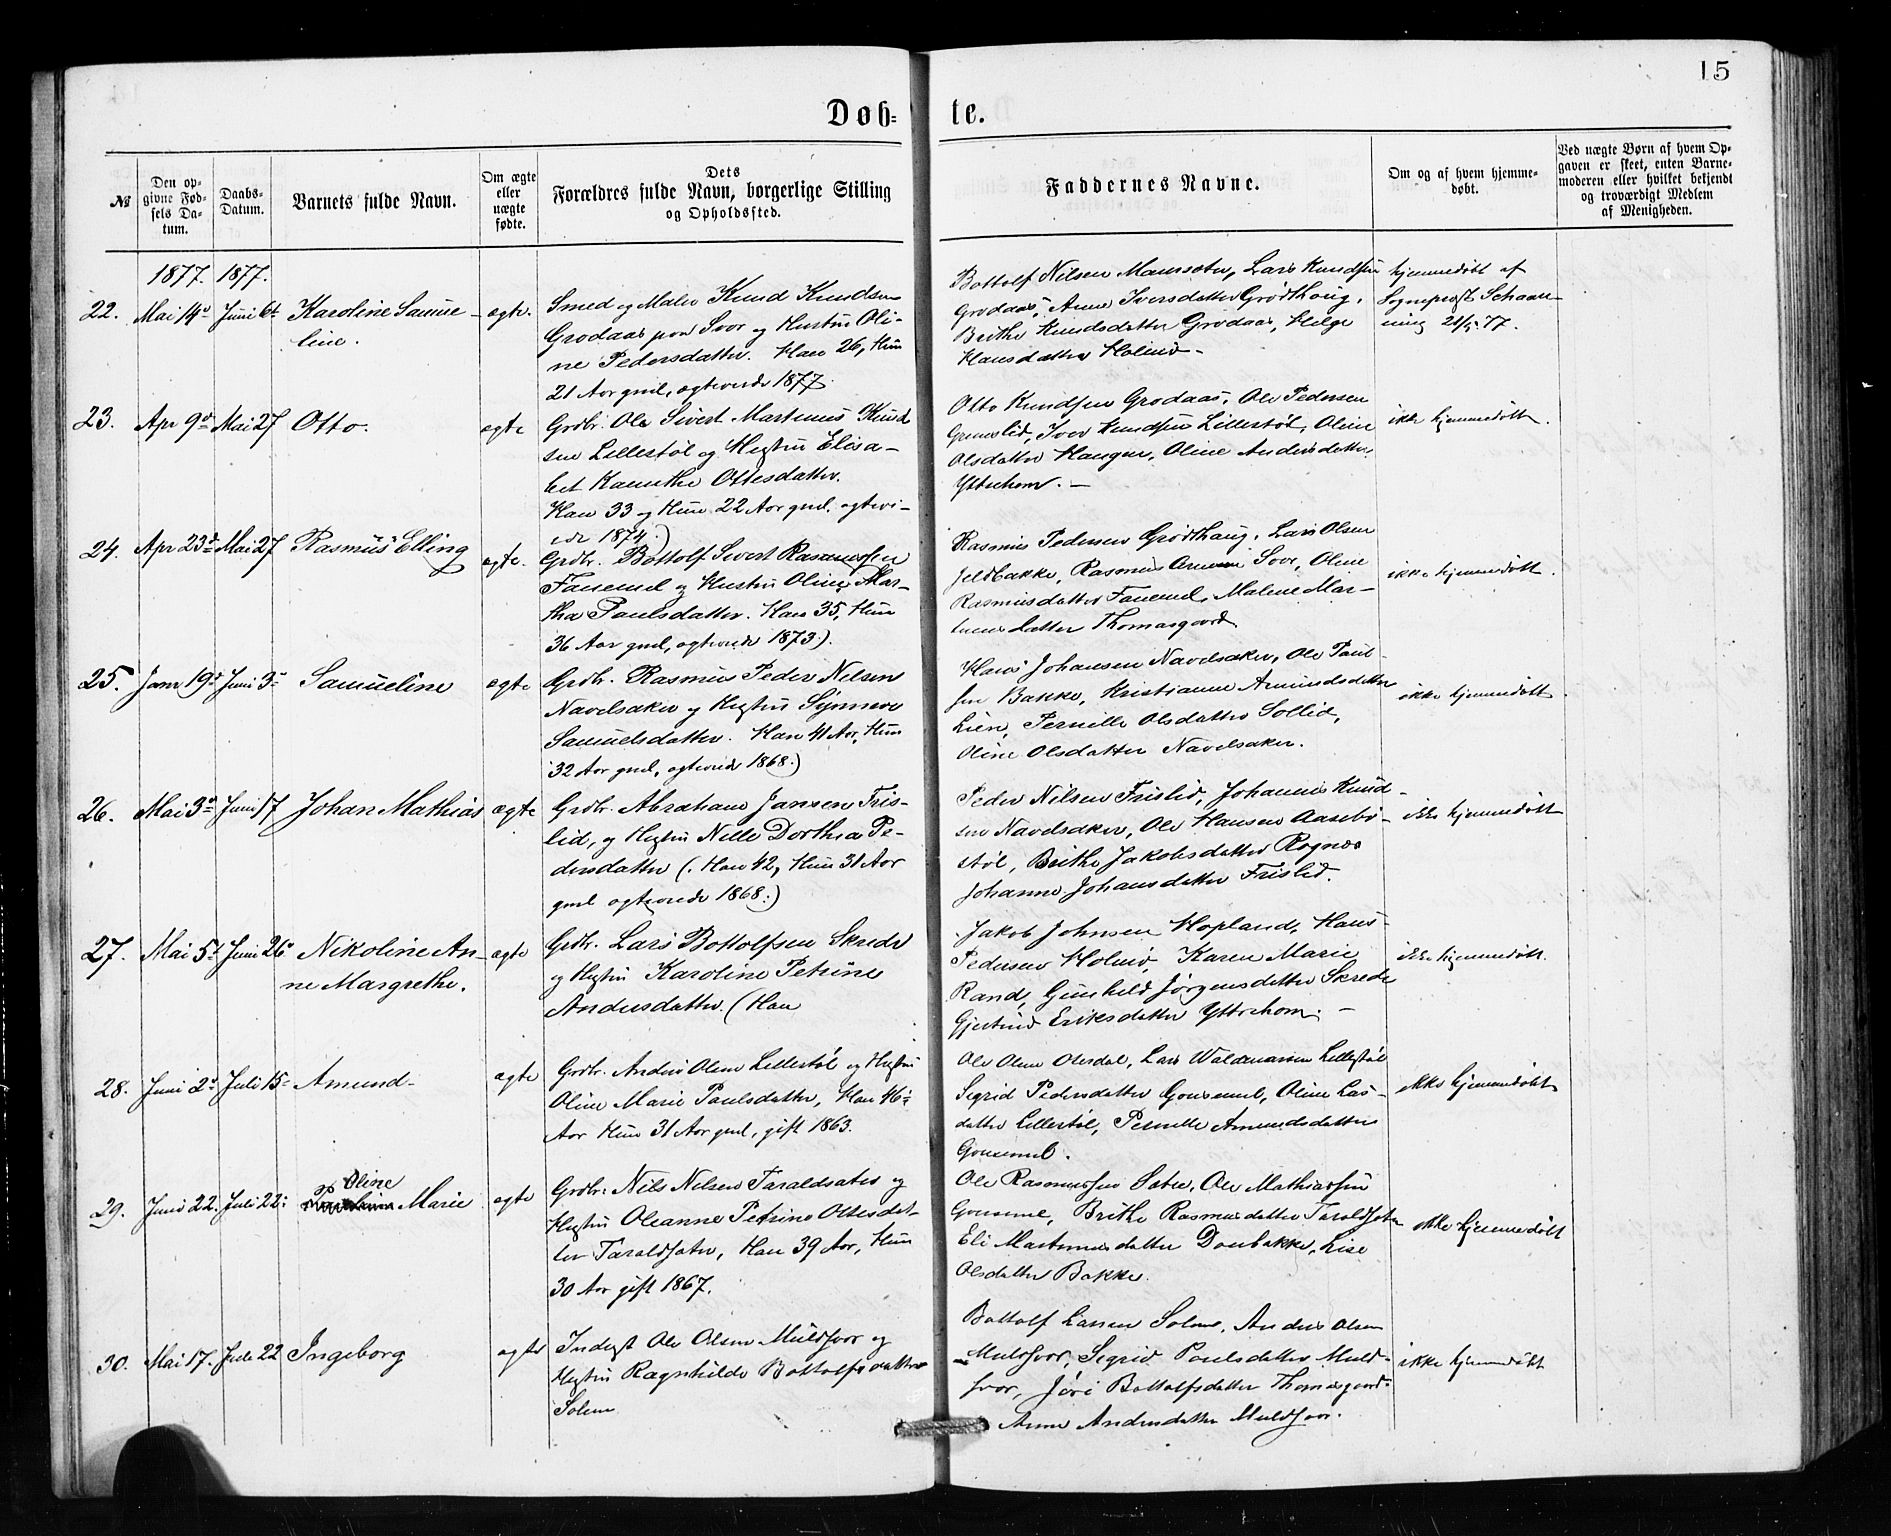 15
Døb= te.
№
Den op-
givne Fød-
sels Da-
tum.
Daabs-
Datum.
Barnets fulde Navn.
Om ægte
eller
uægte
fødte.
Dets
Forældres fulde Navn, borgerlige Stilling
og Opholdssted.
Faddernes Navne.
Om og af hvem hjemme-
døbt.
Ved uægte Børn af hvem Op-
gaven er skeet, enten Barne-
moderen eller hvilket bekjendt
og troværdigt Medlem
af Menigheden.
1877. 1877.
22. Mai 14de Juni 6te Karoline Samue-
line.
ægte.
Smed og Maler Knud Knudsen
Grodaas paa Svor og Hustru Oli-
ne Pedersdatter. Han 26, Hun
21 Aar gml, ægteviede 1877.
Bottolf Nilsen Maursæter, Lars Knudsen
Grodaas, Anne Iversdatter Grøthoug,
Brithe Knudsdatter Grodaas, Helge
Hansdatter Holmø-
hjemmedøbt af
Sogneprest Schaan-
ning 21/5 77.
23. Apr 9de Mai 27 Otto.
ægte
Grdbr. Ole Sivert Martinus Knud
sen Lillestøl og Hustru Elisa-
bet Kamthe Ottesdatter.
Han 33 og Hun 22 Aar gml. ægtevi-
ede 1874.)
Otto Knudsen Grodaas, Ole Pedersen
Grimslid, Iver Knudsen Lillestøl, Oline
Olsdatter Haugen, Oline Andersdatter
Ytrehorn. -
ikke hjemmedøbt.
24. Apr 23de Mai 27 Rasmus Elling
ægte.
Grdbr. Bottolf Sivert Rasmussen
Fanemel og Hustru Oline Mar-
tha Paulsdatter. Han 35, Hun
36 Aar gml, ægteviede 1873.)
Rasmus Pedersen Grøthaug, Lars Olsen
Jeldbakke, Rasmus Svor, Oline
Rasmusdatter Fanemel, Malene Mar-
tinusdatter Thomasgaard
ikke hjemmedøbt.
25. Janr 19de Juni 3die Samueline
ægte
Grdbr. Rasmus Peder Nilsen
Navelsaker og Hustru Synneve
Samuelsdatter. Han 41 Aar, Hun
32 Aar gml, ægteviede 1868.)
Hans Johansen Navelsaker, Ole Paul-
sen Bakke, Kristianne Amundsdatter
Lien, Pernille Olsdatter Sollid,
Oline Olsdatter Navelsaker.
ikke hjemmedøbt.
26. Mai 3die Juni 17 Johan Mathias
ægte
Grdbr. Abraham Jansen Fris-
lid, og Hustru Nille Dorthea Pe-
dersdatter (. Han 42, Hun 31 Aar
gml ægteviede 1868.)
Peder Nilsen Frislid, Johannes Knud-
sen Navelsaker, Ole Hansen Aasebø-
støl, Brithe Jakobsdatter Rognes
Johanne Johansdatter Frislid.
ikke hjemmedøbt
27. Mai 5te Juni 26 Nikoline An-
ne Margrethe.
ægte
Grdbr. Lars Bottolfsen Skrede
og Hustru Karoline Petrine
Andersdatter. (Han
Jakob Johnsen Hopland, Hans
Pedersen Holmø, Karen Marie
Rand, Gunhild Jørgensdatter Skrede
Gjertrud Eriksdatter Ytrehorn. -
ikke hjemmedøbt.
28. Juni 2de Juli 15 Amund-
ægte
Grdbr. Anders Olsen Lillestøl og Hustru
Oline Marie Paulsdatter, Han 46
Aar Hun 31 Aar gml, gift 1863.
Ole Olsen Otterdal, Lars Waldemarsen Lillestøl
Sigrid Pedersdatter Gausemel, Oline Las-
datter Lillestøl, Pernille Amundsdatter
Gausemel.
ikke hjemmedøbt
29. Juni 22. Juli 22 Oline
Marie
ægte
Grdbr. Nils Nilsen Taraldsæter og
Hustru Oleanne Petrine Ottesdat-
ter Taraldsæter, Han 39 Aar, Hun
30 Aar gift 1867.
Ole Rasmussen Sæter, Ole Mathiassen
Gausemel, Brithe Rasmusdatter Taraldsæter
Eli Martinusdatter Donbakke, Lise
Olsdatter Bakke.
ikke hjemmedøbt
30. Mai 17. Juli 22 Ingeborg
ægte
Inderst Ole Olsen Muldsvor og
Hustru Ragnhilde Bottolfsdatter
Solem
Bottolf Larsen Solem, Anders Olsen
Muldsvor, Sigrid Paulsdatter Muld-
svor, Jøri Bottolfsdatter Thomasgaard
Anne Andersdatter Muldsvor.
ikke hjemmedøbt